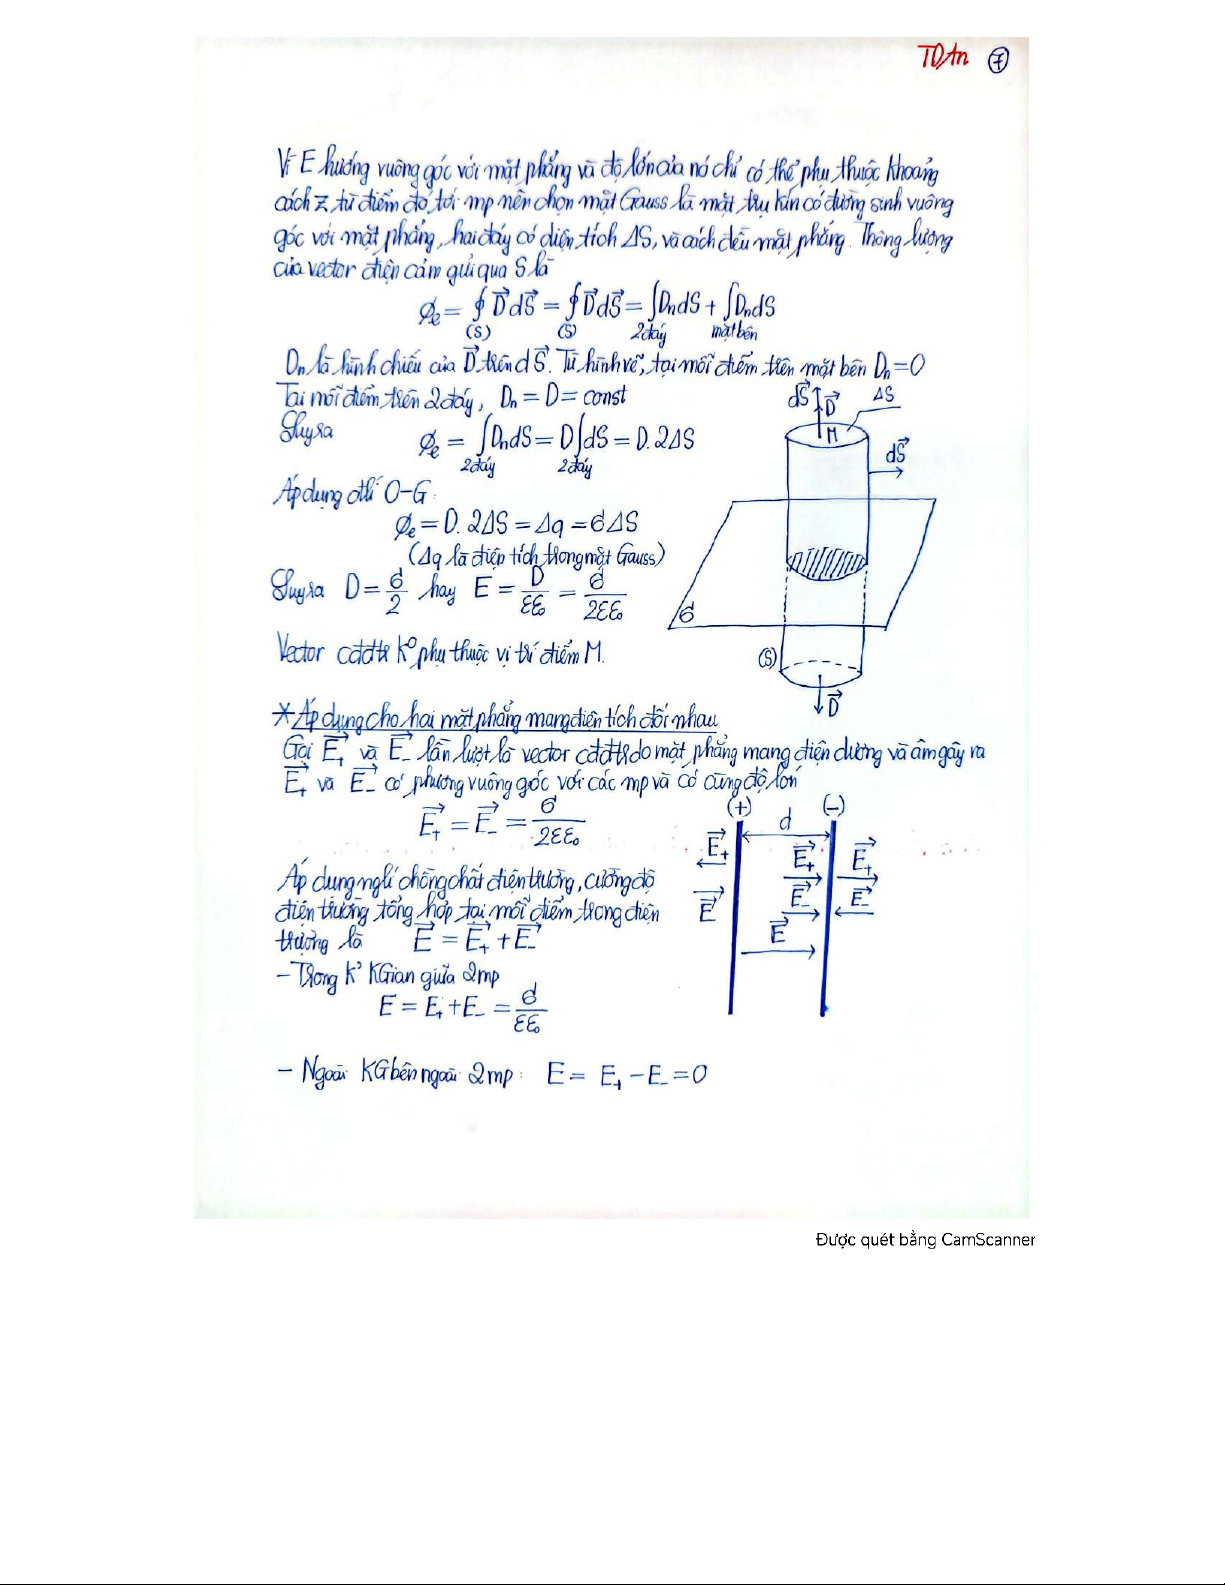 TDAn 7
Vì E hướng vuông góc với mặt phẳng và độ lớn của nó chỉ có thể phụ thuộc khoảng
cách z từ điểm đó tới mp nên chọn mặt Gauss là mặt trụ kín có đường sinh vuông
góc với mặt phẳng, hai đáy có diện tích ΔS, và cách đều mặt phẳng. Thông lượng
của vector điện cảm gửi qua S là
Φe = ∮ D⃗dS⃗ = ∮ D⃗dS⃗ = ∫DndS + ∫DndS
(S) (S) 2 đáy mặt bên
Dn là hình chiếu của D⃗ trên dS⃗. Từ hình vẽ, tại mỗi điểm trên mặt bên Dn = 0
Tại mỗi điểm trên 2 đáy, Dn = D = const
Suy ra Φe = ∫DndS = D∫dS = D.2ΔS
2 đáy 2 đáy
Áp dụng đlí O-G:
Φe = D.2ΔS = Δq = σΔS
(Δq là điện tích trong mặt Gauss)
Suy ra D = σ/2 hay E = D/εε₀ = σ/2εε₀
Vector cđđtr k⁰ phụ thuộc vị trí điểm M.
dS⃗ D⃗ ΔS
M
dS⃗
σ
(S)
D⃗
* Áp dụng cho hai mặt phẳng mang điện tích đối nhau
Gọi E⃗₊ và E⃗₋ lần lượt là vector cđđtr do mặt phẳng mang điện dương và âm gây ra
E⃗₊ và E⃗₋ có phương vuông góc với các mp và có cùng độ lớn
E⃗₊ = E⃗₋ = σ/2εε₀
Áp dụng nglí chồng chất điện trường, cường độ
điện trường tổng hợp tại mỗi điểm trong điện
trường là E⃗ = E⃗₊ + E⃗₋
- Trong k' KGian giữa 2mp
E = E₊ + E₋ = σ/εε₀
- Ngoài KG bên ngoài 2mp: E = E₊ - E₋ = 0
(+) (-)
d
E⃗₊ E⃗₊ E⃗₊
E⃗ E⃗₋ E⃗₋
E⃗
Được quét bằng CamScanner